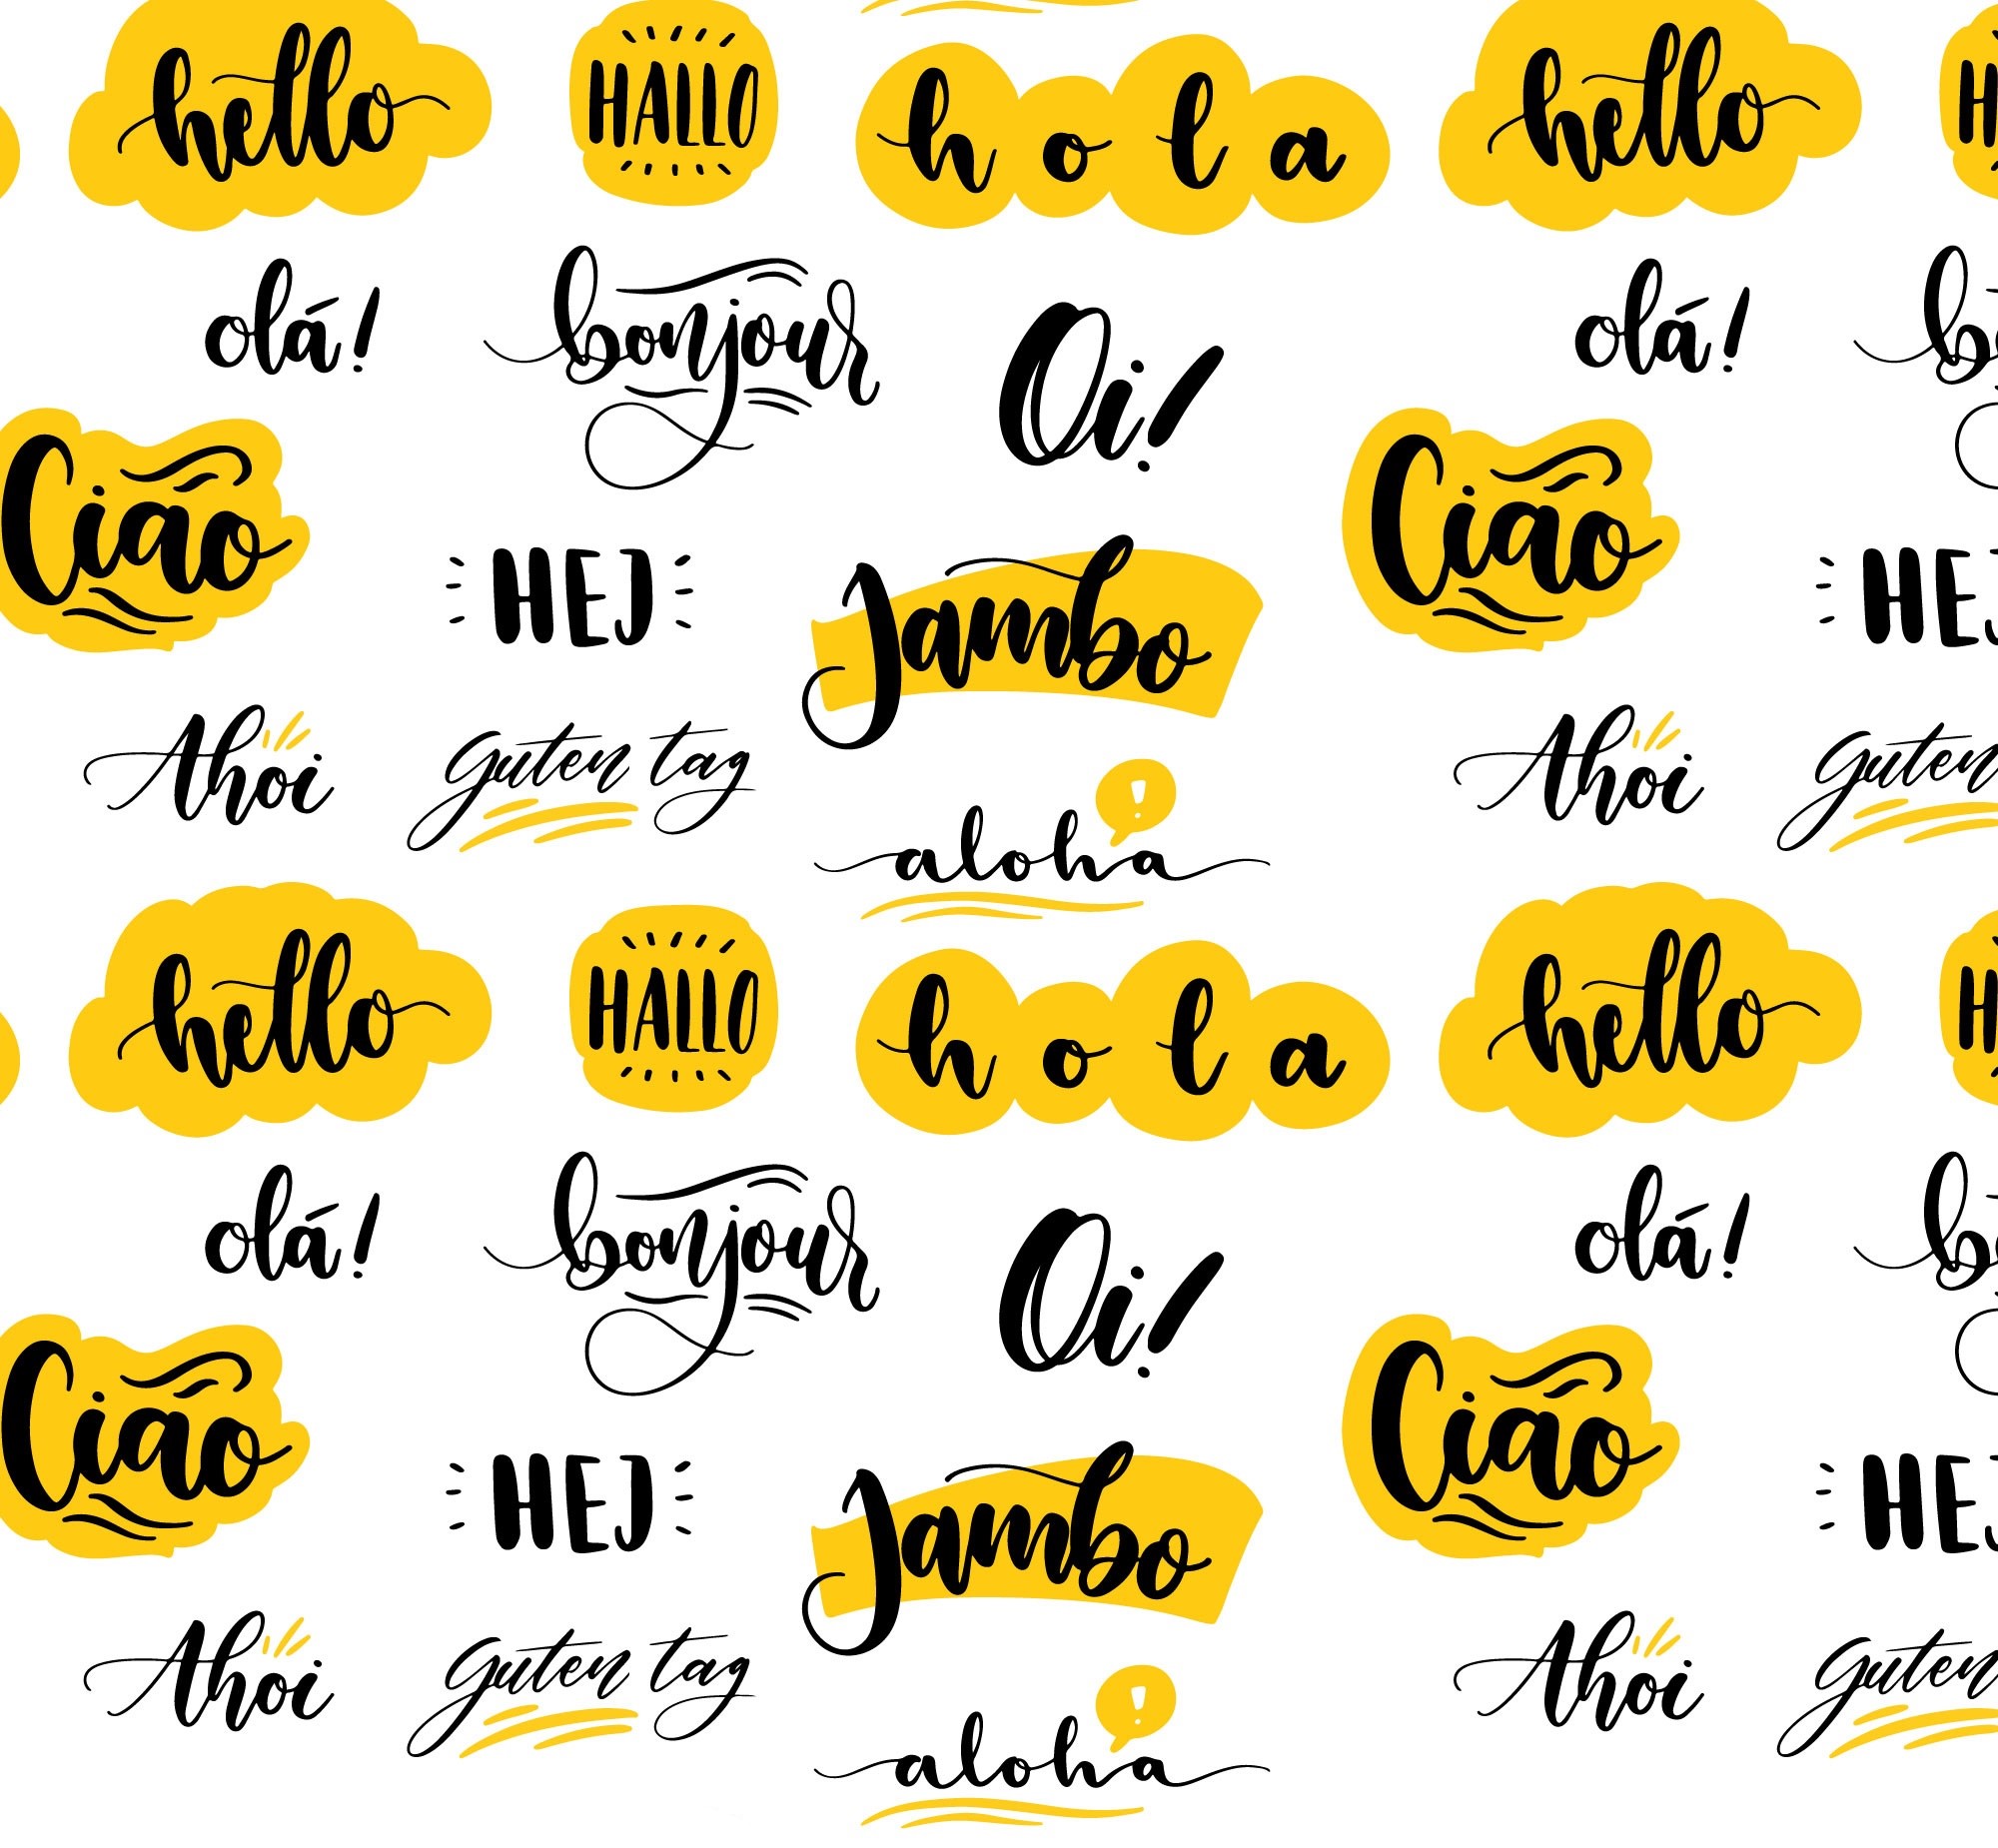 hello HALLO hola hello H
olá! bonjour Oi! olá! bo
Ciao HEJ Jambo Ciao HEJ
Ahoi guten tag Ahoi guten
!
aloha
hello HALLO hola hello H
olá! bonjour Oi! olá! bo
Ciao HEJ Jambo Ciao HEJ
Ahoi guten tag Ahoi guten
!
aloha